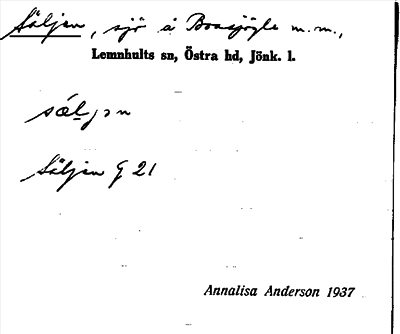 Säljen, sjö å Bossjögle m.m.,
Lemnhults sn, Östra hd, Jönk. l.
sæljən
Säljen G 21
Annalisa Anderson 1937